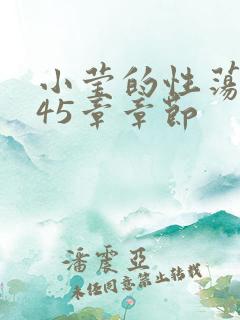 小莹的性荡
45章章节
潘震亚
未经同意禁止转载